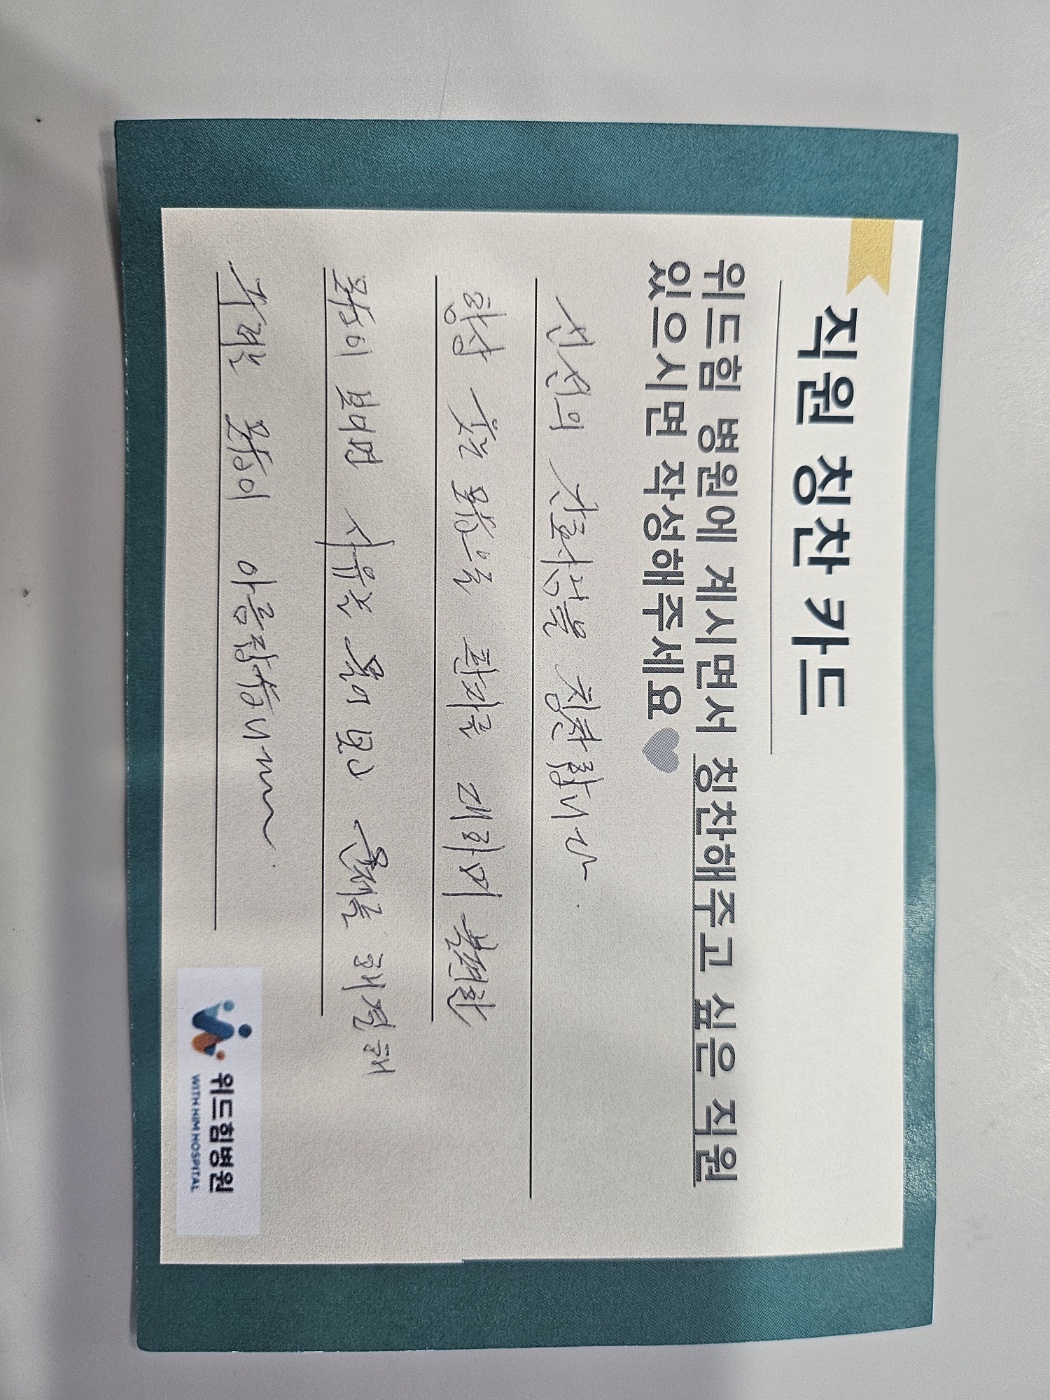 직원 칭찬 카드
위드힘 병원에 계시면서 칭찬해주고 싶은 직원
있으시면 작성해주세요
간호사님을 칭찬합니다.
항상 웃는 모습으로 환자를 대하며 불편한
모습이 보이면 사유를 묻고 문제를 해결해
주려는 모습이 아름답습니다
위드힘병원
WITH HIM HOSPITAL